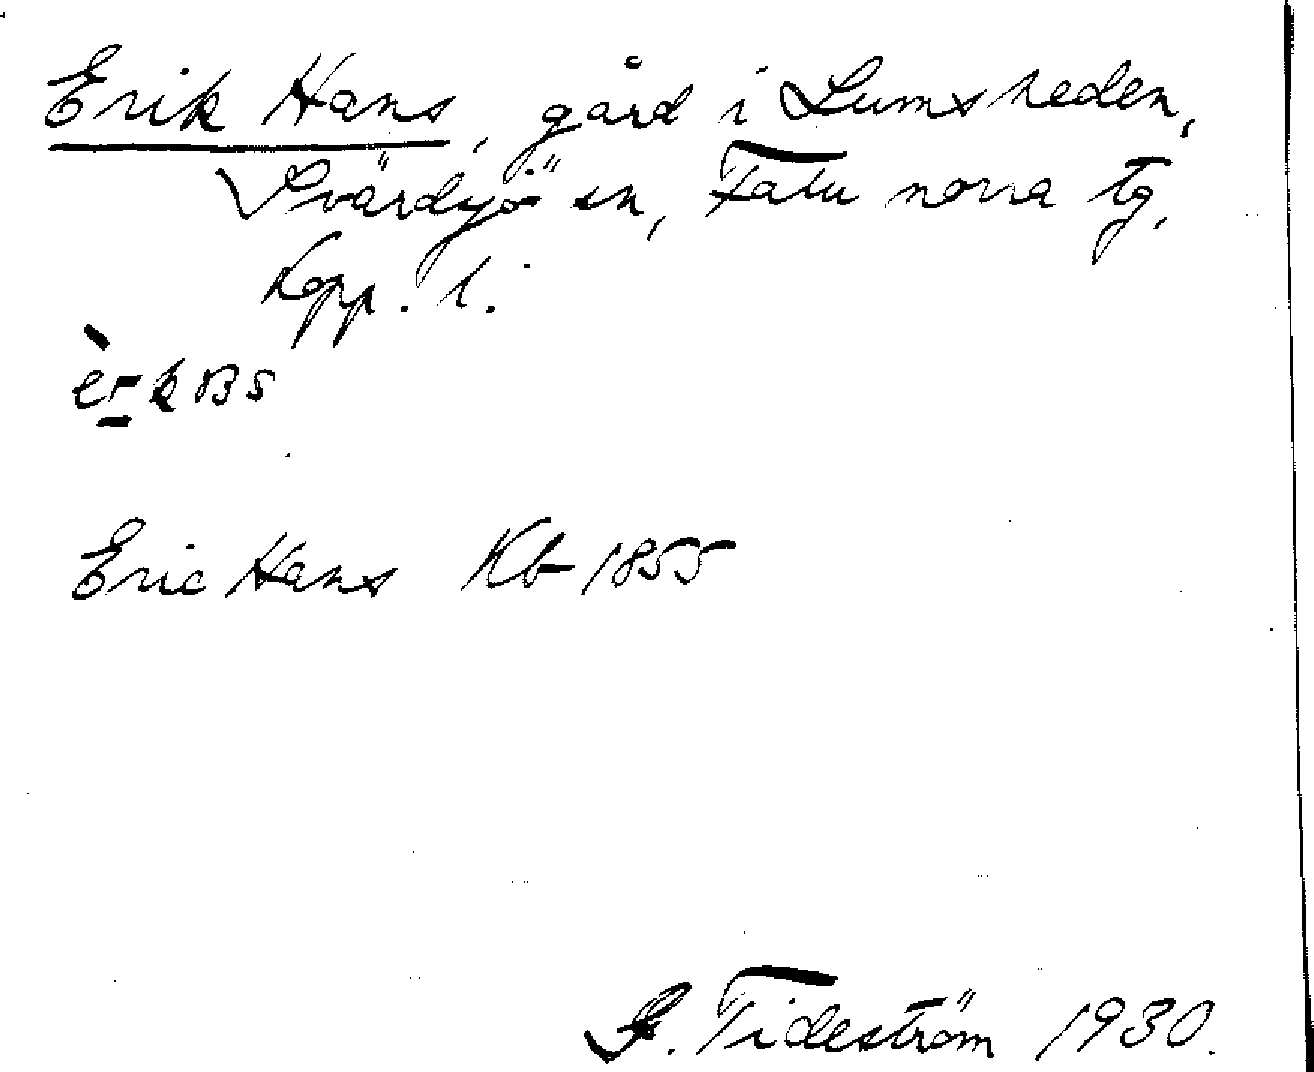 Erik Hans, gård i Lumsheden,
Svärdsjö sn, Falu norra tg,
Kopp. l.
Eric Hans Kb 1855
G. Tideström 1930.